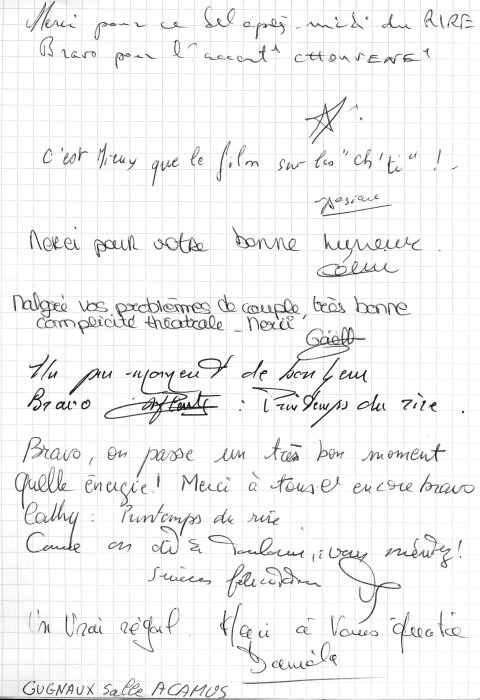 Merci pour ce bel après-midi du RIRE
Bravo pour l'accent CHOUVENC
C'est Mieux que le film sur les "ch'ti" ! -
Merci pour votre bonne humeur.
Céline
Malgré vos problèmes de couple, très bonne
complicité théatrale - Merci
Gaëll
Un pur moment de bonheur
Bravo : Printemps du rire.
Bravo, on passe un très bon moment
quelle énergie! Merci à tous et encore bravo
Cathy : Printemps du rire
Comme on dit à Toulouse,
sincères félicitations
Un Vrai régal. Merci à Vous quatre
Danièle
CUGNAUX Salle ACAMUS